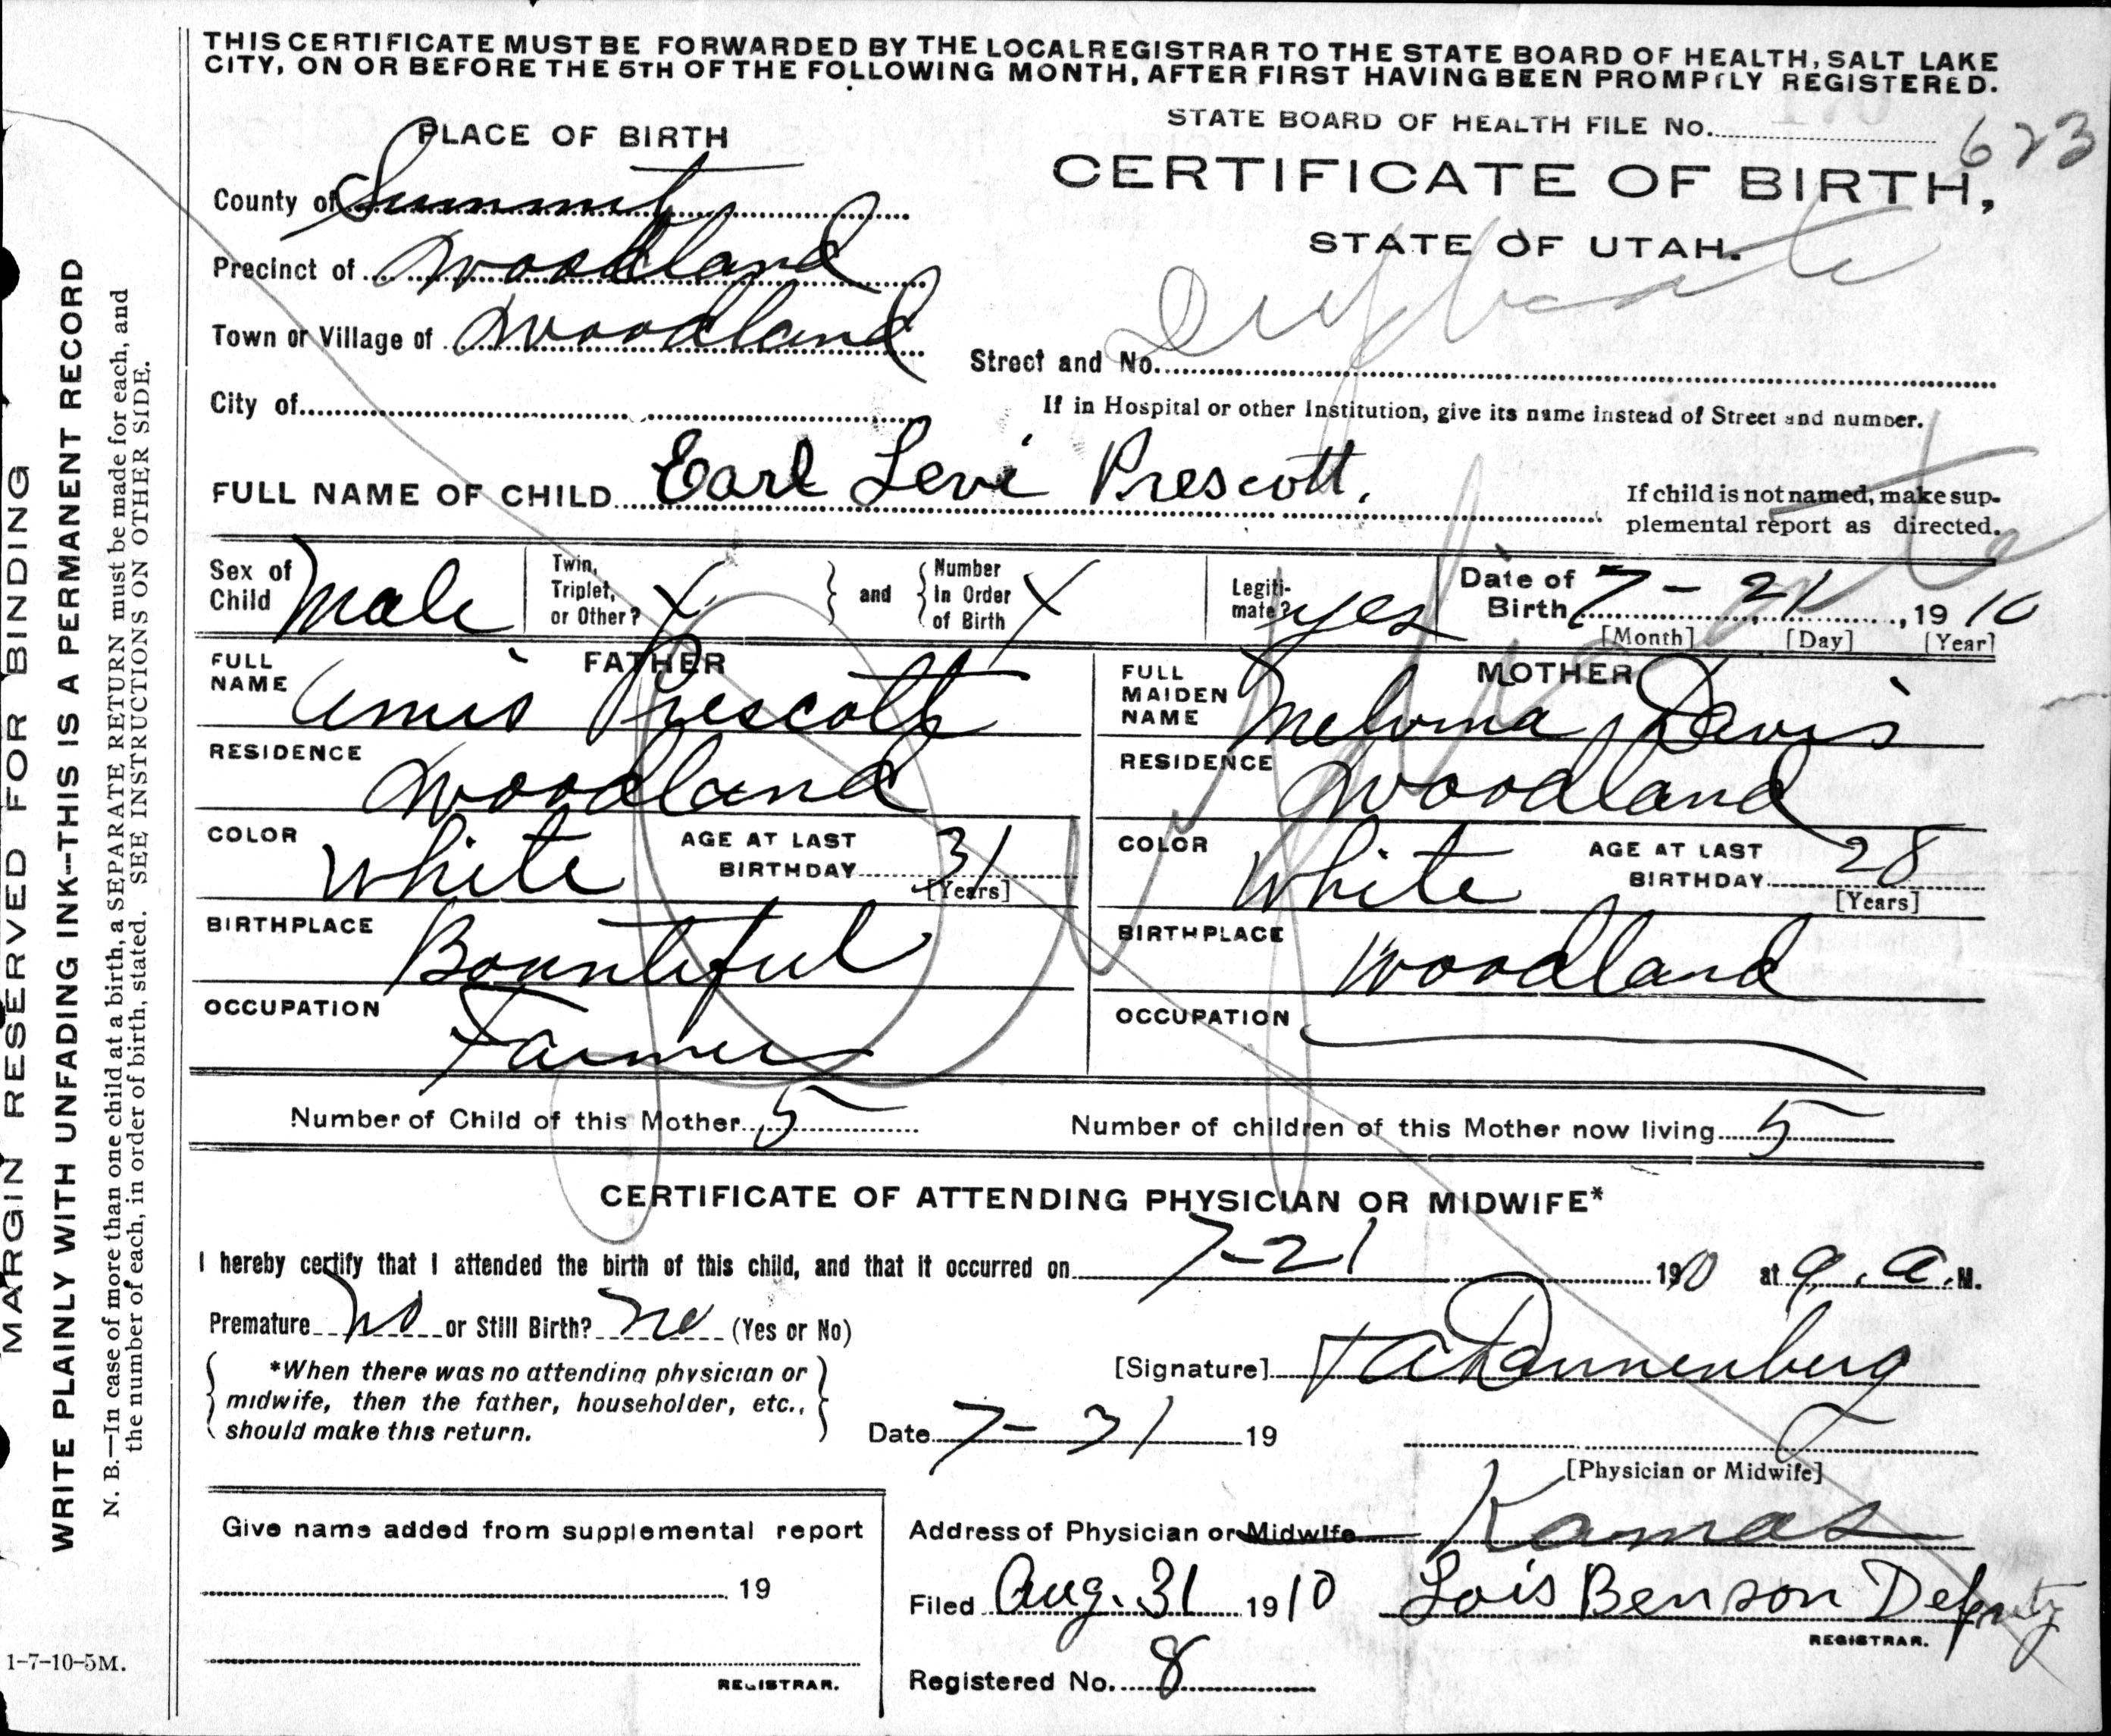 THIS CERTIFICATE MUST BE FORWARDED BY THE LOCAL REGISTRAR TO THE STATE BOARD OF HEALTH, SALT LAKE
CITY, ON OR BEFORE THE 5TH OF THE FOLLOWING MONTH, AFTER FIRST HAVING BEEN PROMPTLY REGISTERED.
STATE BOARD OF HEALTH FILE No. 623
PLACE OF BIRTH
CERTIFICATE OF BIRTH,
STATE OF UTAH.
County of Summit
Precinct of Woodland
Duplicate
Town or Village of Woodland
Street and No.
City of
If in Hospital or other Institution, give its name instead of Street and number.
FULL NAME OF CHILD Earl Levi Prescott.
If child is not named, make sup-
plemental report as directed.
Duplicate
Sex of Child Male
Twin, Triplet, or Other? X
and
Number In Order of Birth X
Legiti-mate? yes
Date of Birth 7-21, 1910
[Month] [Day] [Year]
FATHER
FULL NAME Prescott
RESIDENCE Woodland
COLOR White
AGE AT LAST BIRTHDAY 31
[Years]
BIRTHPLACE Bountiful
OCCUPATION Farmer
MOTHER
FULL MAIDEN NAME Melvina Davis
RESIDENCE Woodland
COLOR White
AGE AT LAST BIRTHDAY 28
[Years]
BIRTHPLACE Woodland
OCCUPATION
Number of Child of this Mother 5
Number of children of this Mother now living 5
CERTIFICATE OF ATTENDING PHYSICIAN OR MIDWIFE*
I hereby certify that I attended the birth of this child, and that it occurred on 7-21 1910 at 9. a. M.
Premature No or Still Birth? No (Yes or No)
*When there was no attending physician or
midwife, then the father, householder, etc.,
should make this return.
[Signature] Dannenberg
Date 7-31 19
[Physician or Midwife]
Address of Physician or Midwife Kamas
Give name added from supplemental report
19
REGISTRAR.
Filed Aug. 31 1910 Lois Benson Deputy
REGISTRAR.
Registered No. 8
1-7-10-5M.
MARGIN RESERVED FOR BINDING
WRITE PLAINLY WITH UNFADING INK--THIS IS A PERMANENT RECORD
N. B.—In case of more than one child at a birth, a SEPARATE RETURN must be made for each, and
the number of each, in order of birth, stated. SEE INSTRUCTIONS ON OTHER SIDE.